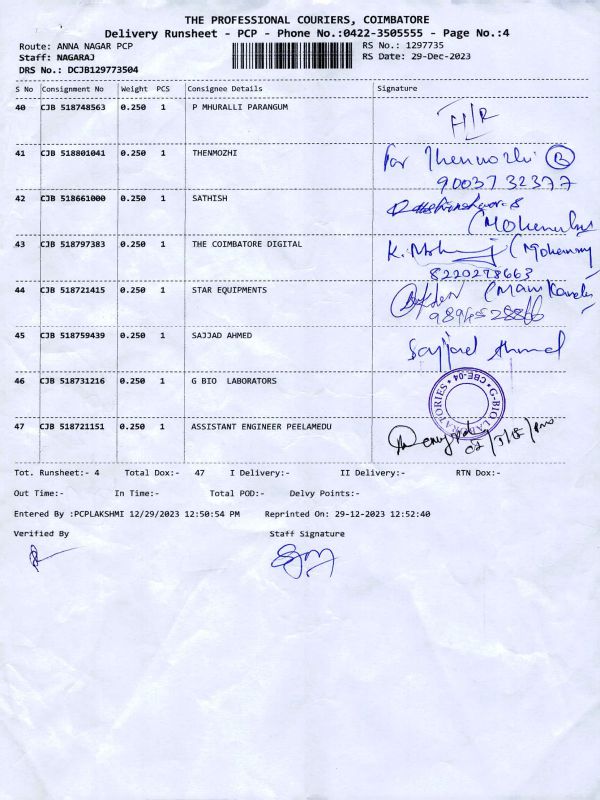 THE PROFESSIONAL COURIERS, COIMBATORE
Delivery Runsheet - PCP - Phone No.:0422-3505555 - Page No.:4
Route: ANNA NAGAR PCP RS No.: 1297735
Staff: NAGARAJ RS Date: 29-Dec-2023
DRS No.: DCJB129773504
S No Consignment No Weight PCS Consignee Details Signature
40 CJB 518748563 0.250 1 P MHURALLI PARANGUM
H/R
41 CJB 518801041 0.250 1 THENMOZHI For Thenmozhi
9003732377
42 CJB 518661000 0.250 1 SATHISH
43 CJB 518797383 0.250 1 THE COIMBATORE DIGITAL K.
8220278663
44 CJB 518721415 0.250 1 STAR EQUIPMENTS
9894528886
45 CJB 518759439 0.250 1 SAJJAD AHMED Sajjad Ahmed
46 CJB 518731216 0.250 1 G BIO LABORATORS G-BIO LABORATORIES CBE-04
47 CJB 518721151 0.250 1 ASSISTANT ENGINEER PEELAMEDU
Tot. Runsheet:- 4 Total Dox:- 47 I Delivery:- II Delivery:- RTN Dox:-
Out Time:- In Time:- Total POD:- Delvy Points:-
Entered By :PCPLAKSHMI 12/29/2023 12:50:54 PM Reprinted On: 29-12-2023 12:52:40
Verified By Staff Signature